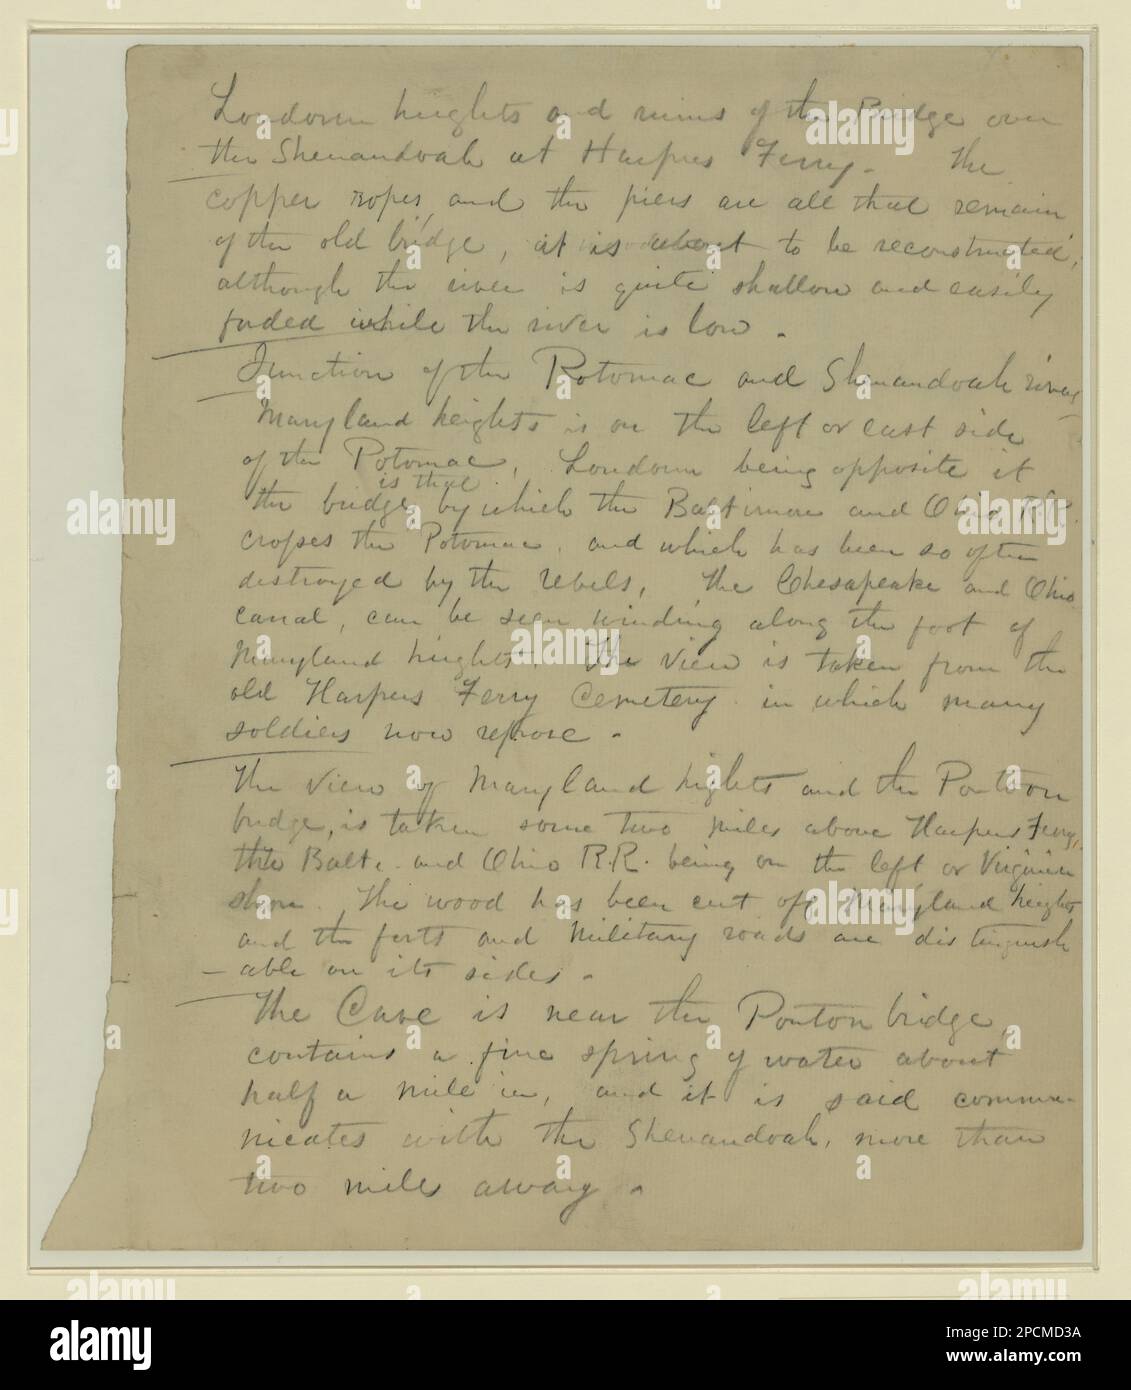 Loudoun heights and ruins of the Bridge over
the Shenandoah at Harpers Ferry. The
copper ropes, and the piers are all that remain
of the old bridge, it is about to be reconstructed,
although the river is quite shallow and easily
forded while the river is low.
Junction of the Potomac and Shenandoah rivers
Maryland heights is on the left or east side
of the Potomac, Loudoun being opposite it
is that
the bridge by which the Baltimore and Ohio R.R.
crosses the Potomac, and which has been so often
destroyed by the rebels, The Chesapeake and Ohio
canal, can be seen winding along the foot of
Maryland heights. The view is taken from the
old Harpers Ferry Cemetery in which many
soldiers now repose.
The view of Maryland hights and the Pontoon
bridge, is taken some two miles above Harpers Ferry,
the Balt. and Ohio R.R. being on the left or Virginia
shore. The wood has been cut off Maryland heights
and the forts and military roads are distinguish
-able on its sides.
The Cave is near the Ponton bridge,
contains a fine spring of water about
half a mile in, and it is said commu-
nicates with the Shenandoah, more than
two miles away.
alamy
Image ID: 2PCMD3A
www.alamy.com